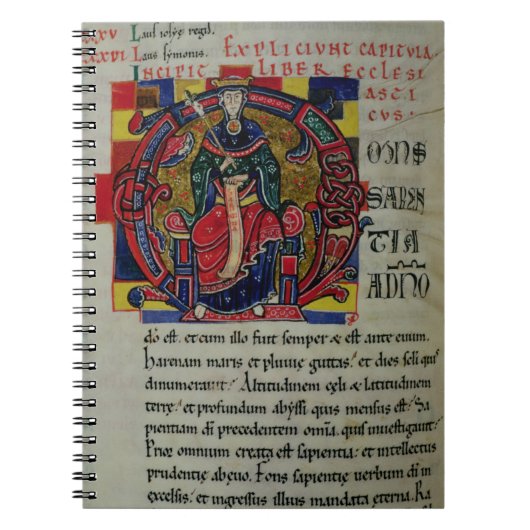 xxv Laus iosye regis.
xxvi Laus symonis. EXPLICIUNT CAPITULA
INCIPIT LIBER ECCLESI
ASTI
CUS:
OMNS
SAPIEN
TIA
A DNO
dō est. et cum illo fuit semper & est ante euum.
Harenam maris et pluuię guttas. et dies scli quis
dinumerauit? Altitudinem cęli & latitudinem
terrę. et profundum abyssi quis mensus est? Sa
pientiam dī precedentem omīa. quis inuestigauit?
Prior omnium creata est sapientia. et intellectus
prudentię ab ęuo. Fons sapientię uerbum dī in
excelsis. et ingressus illius mandata ęterna. Ra